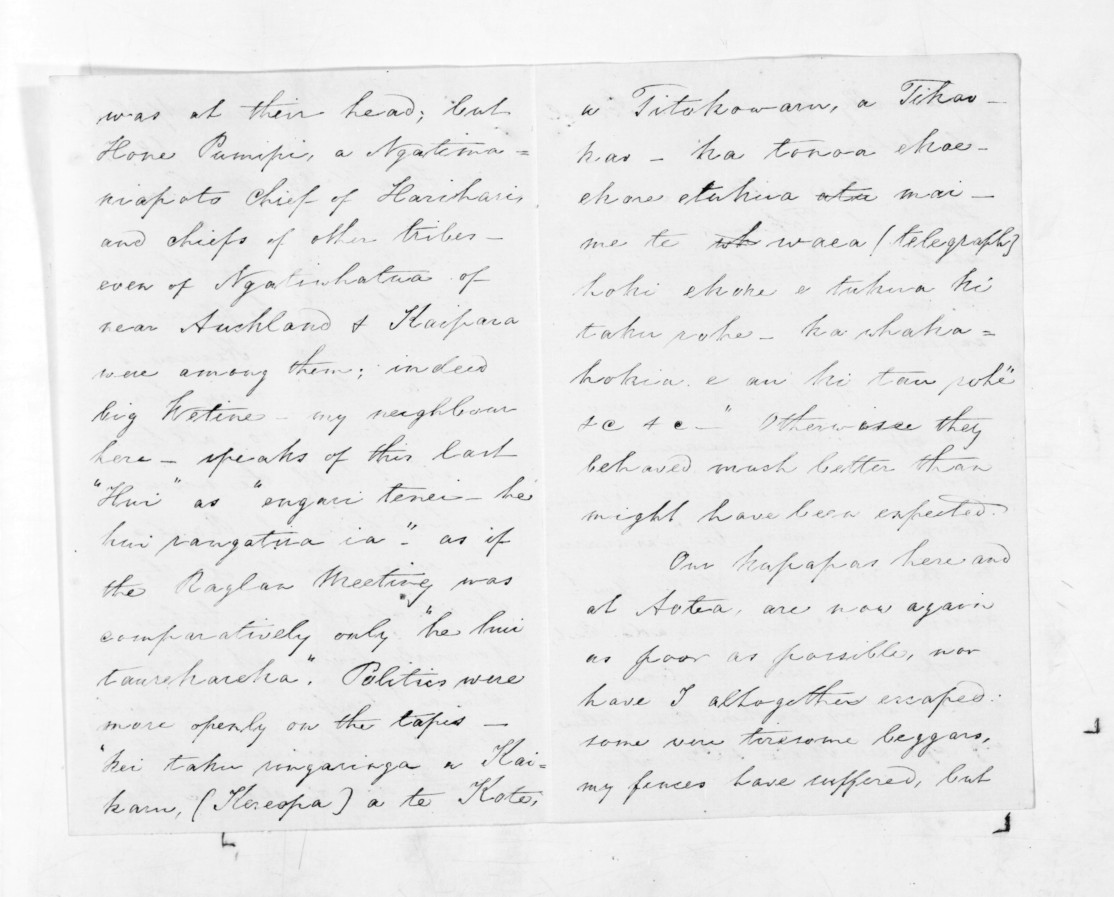 was at their head; but
Hone Pumipi, a Ngatima=
niapoto chief of Hariharis
and chiefs of other tribes —
even of Ngatiwhatua of
near Auckland & Kaipara
were among them; indeed
big Wetine — my neighbour
here — speaks of this last
"Hui" as "engari tenei — he
hui rangatira ia". as if
the Raglan Meeting was
comparatively only "he hui
taurekareka". Politics were
more openly on the tapis —
"kei taku ringaringa a Kai=
karu, (Kereopa) a te Kote,
a Titokowaru, a Tikao-
kao — ka tonoa ekoe —
ekore etukua atu mai —
me te wh waea (telegraph)
hoki ekore e tukua ki
taku rohe — ka whaka=
hokia e au ki tau rohe"
&c &c —" Otherwise they
behaved much better than
might have been expected.
Our kupapas here and
at Aotea, are now again
as poor as possible, nor
have I altogether escaped:
some were tiresome beggars,
my fences have suffered, but